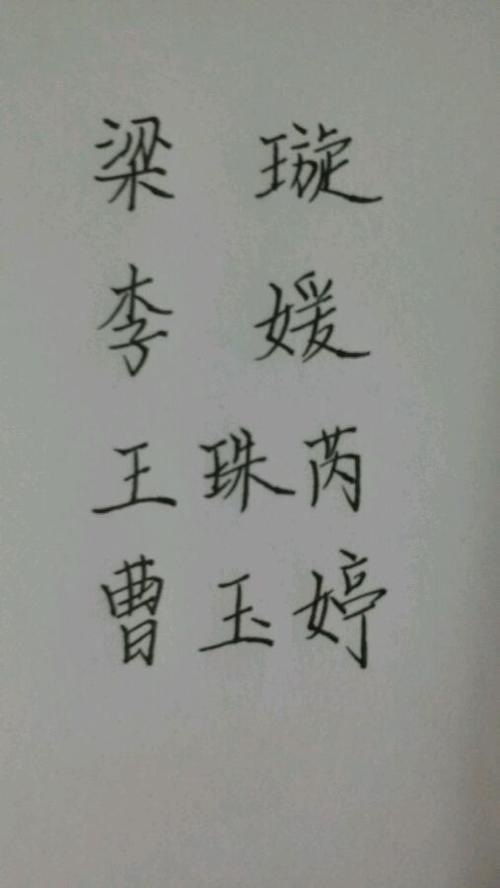 梁 璇
李 媛
王珠芮
曹玉婷